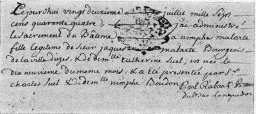 Le jour d'huy vingt deuxieme juillet mille sept
cens quarante quatre j'ai administré
le sacrement du Bâtême a nimphe malarte
fille legitime de sieur jaques malarte Bourgeois
de la ville d'uzes & de dlle catherine Suel, née le
dix neuvieme du meme mois, & a été presentée par sr
charles Suel & de dlle nimphe Boudon